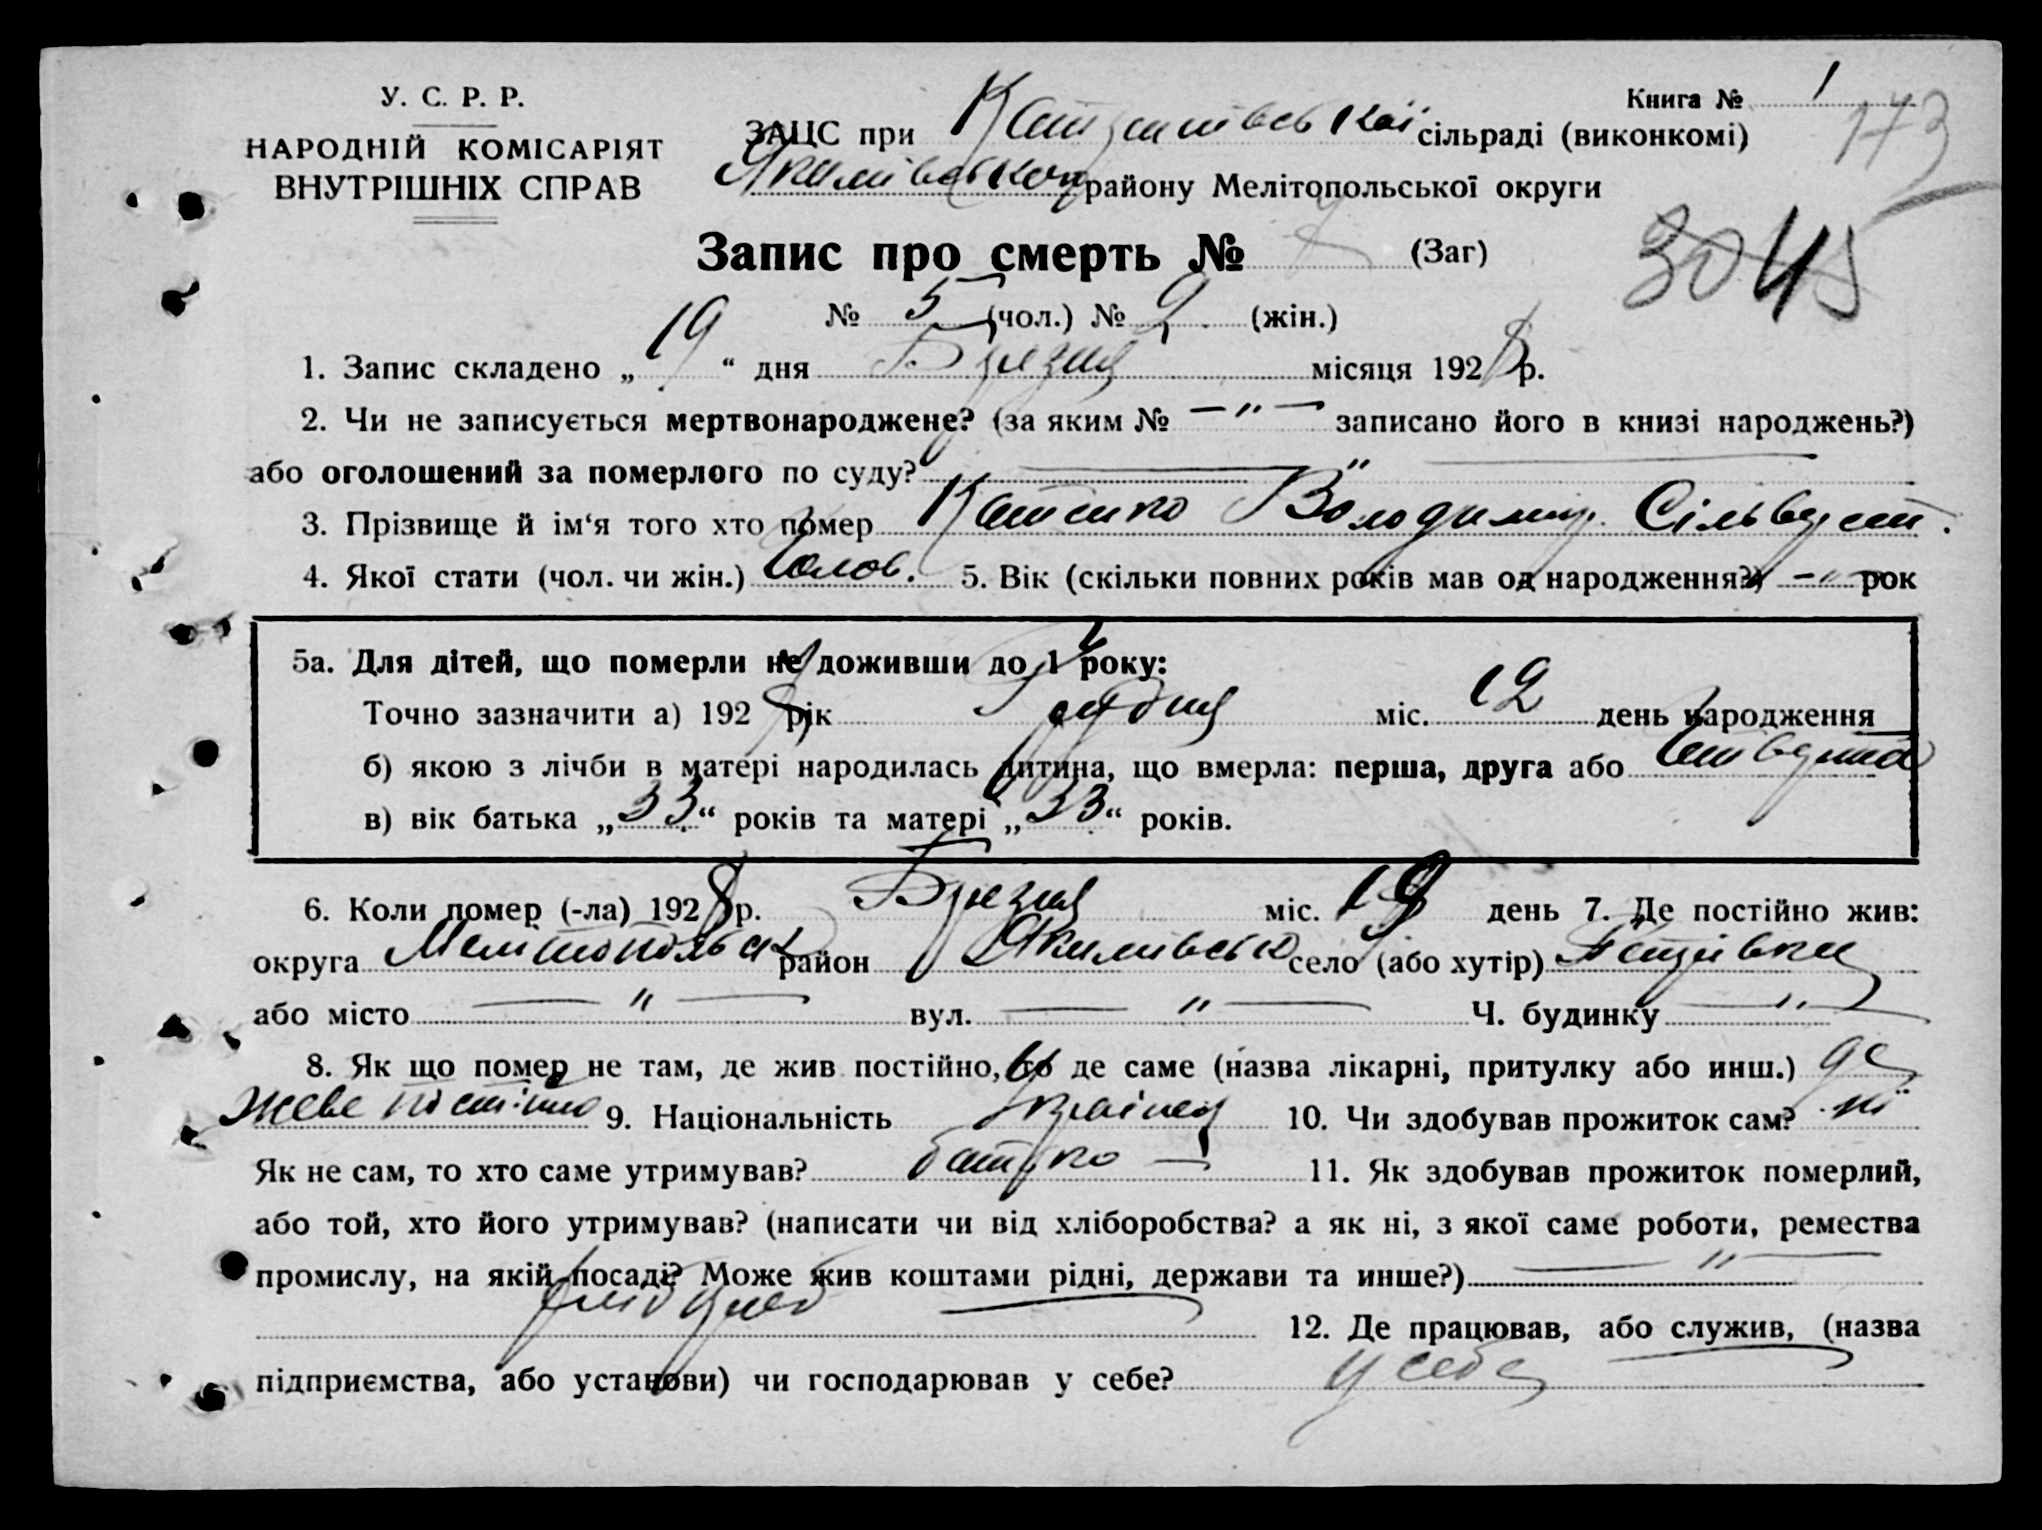 У. С. Р. Р.
НАРОДНІЙ КОМІСАРІЯТ
ВНУТРІШНІХ СПРАВ
Книга № 1
173
ЗАЦС при сільраді (виконкомі)
Якимівського району Мелітопольської округи
Запис про смерть № 7 (Заг)
3045
№ 5 (чол.) № 2 (жін.)
1. Запис складено „ 19 “ дня Березня місяця 1928 р.
2. Чи не записується мертвонароджене? (за яким № —〃— записано його в книзі народжень?)
або оголошений за померлого по суду? —〃—
3. Прізвище й ім‘я того хто помер Катенко Володимир Сільвест.
4. Якої стати (чол. чи жін.) Чолов. 5. Вік (скільки повних років мав од народження?) —〃— рок
5а. Для дітей, що померли не доживши до 1 року:
Точно зазначити а) 192 рік Грудня міс. 12 день народження
б) якою з лічби в матері народилась дитина, що вмерла: перша, друга або Четверта
в) вік батька „ 33 “ років та матері „ 33 “ років.
6. Коли помер (-ла) 1928 р. Березня міс. 19 день 7. Де постійно жив:
округа Мелітопольськ район Якимівськ село (або хутір)
або місто —〃— вул. —〃— Ч. будинку —〃—
8. Як що помер не там, де жив постійно, то де саме (назва лікарні, притулку або инш.) де
живе постійно 9. Національність Українец 10. Чи здобував прожиток сам? ні
Як не сам, то хто саме утримував? батько — 11. Як здобував прожиток померлий,
або той, хто його утримував? (написати чи від хліборобства? а як ні, з якої саме роботи, ремества
промислу, на якій посаді? Може жив коштами рідні, держави та инше?) —〃—
хлібороб 12. Де працював, або служив, (назва
підприємства, або установи) чи господарював у себе? у себе